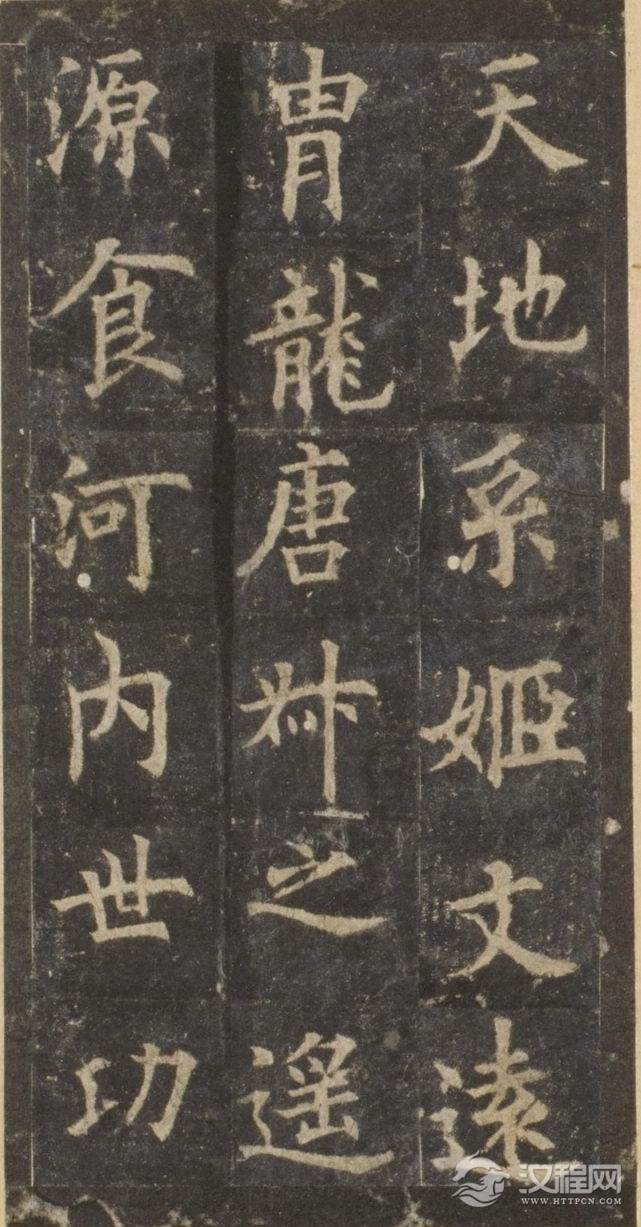 天地系姬文遠
胄龍唐叔之遥
源食河内世功
汉程网
WWW.HTTPCN.COM